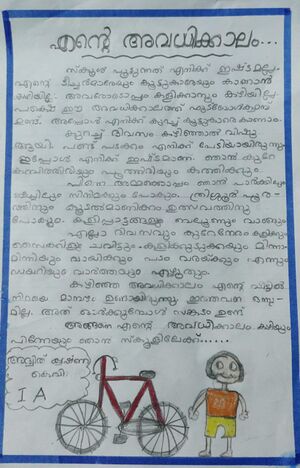 എന്റെ അവധിക്കാലം...
സ്കൂൾ പൂട്ടുന്നത് എനിക്ക് ഇഷ്ടമല്ല.
എന്റെ ടീച്ചർമാരേയും കൂട്ടുകാരേയും കാണാൻ
കഴിയില്ല. അവരോടൊപ്പം കളിക്കാനും കഴിയില്ല.
പക്ഷേ ഈ അവധിക്കാലത്ത്
ഉണ്ട്. അപ്പോൾ എനിക്ക് കുറച്ച് കൂട്ടുകാരെ കാണാം.
കുറച്ച് ദിവസം കഴിഞ്ഞാൽ വിഷു
ആയി. പണ്ട് പടക്കം എനിക്ക് പേടിയായിരുന്നു
ഇപ്പോൾ എനിക്ക് ഇഷ്ടമാണ്. ഞാൻ കുറേ
കമ്പിത്തിരിയും പൂത്തിരിയും കത്തിക്കും.
പിന്നെ അമ്മത്തൊപ്പം ഞാൻ പാർക്കിലും
ബീച്ചിലും സിനിമക്കും പോകും. തൃശ്ശൂർ പൂര-
ത്തിനും കൂടൽമാണിക്യം ഉത്സവത്തിനു
പോകും. കളിപ്പാട്ടങ്ങളും ബലൂണും വാങ്ങും
എല്ലാ ദിവസവും കുറേനേരം കളിക്കും
സൈക്കിളും ചവിട്ടും. കളിക്കുടുക്കയും മിന്നാ-
മിന്നിയും വായിക്കും പടം വരയ്ക്കും എന്നും
ഡയറിയും വാർത്തയും എഴുതും.
കഴിഞ്ഞ അവധിക്കാലം എന്റെ വീട്ടിൽ
നിറയെ മാമ്പഴം ഉണ്ടായിരുന്നു. ഇത്തവണ ഒന്നു-
മില്ല. അത് ഓർക്കുമ്പോൾ സങ്കടം ഉണ്ട്
അങ്ങനെ എന്റെ അവധിക്കാലം കഴിയും
പിന്നേയും ഞാൻ സ്കൂളിലേക്ക്......
അദ്വിത് കൃഷ്ണ
കെ.വി.
I A